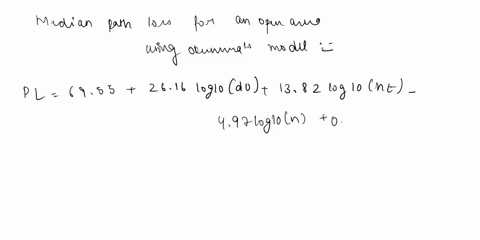 Median path loss for an open area
using okumura's model :-
PL = 69.55 + 26.16 log10(d0) + 13.82 log10(nt) -
4.97 log10(n) + 0.